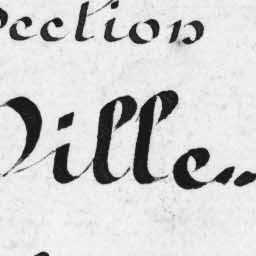 Section
Ville..